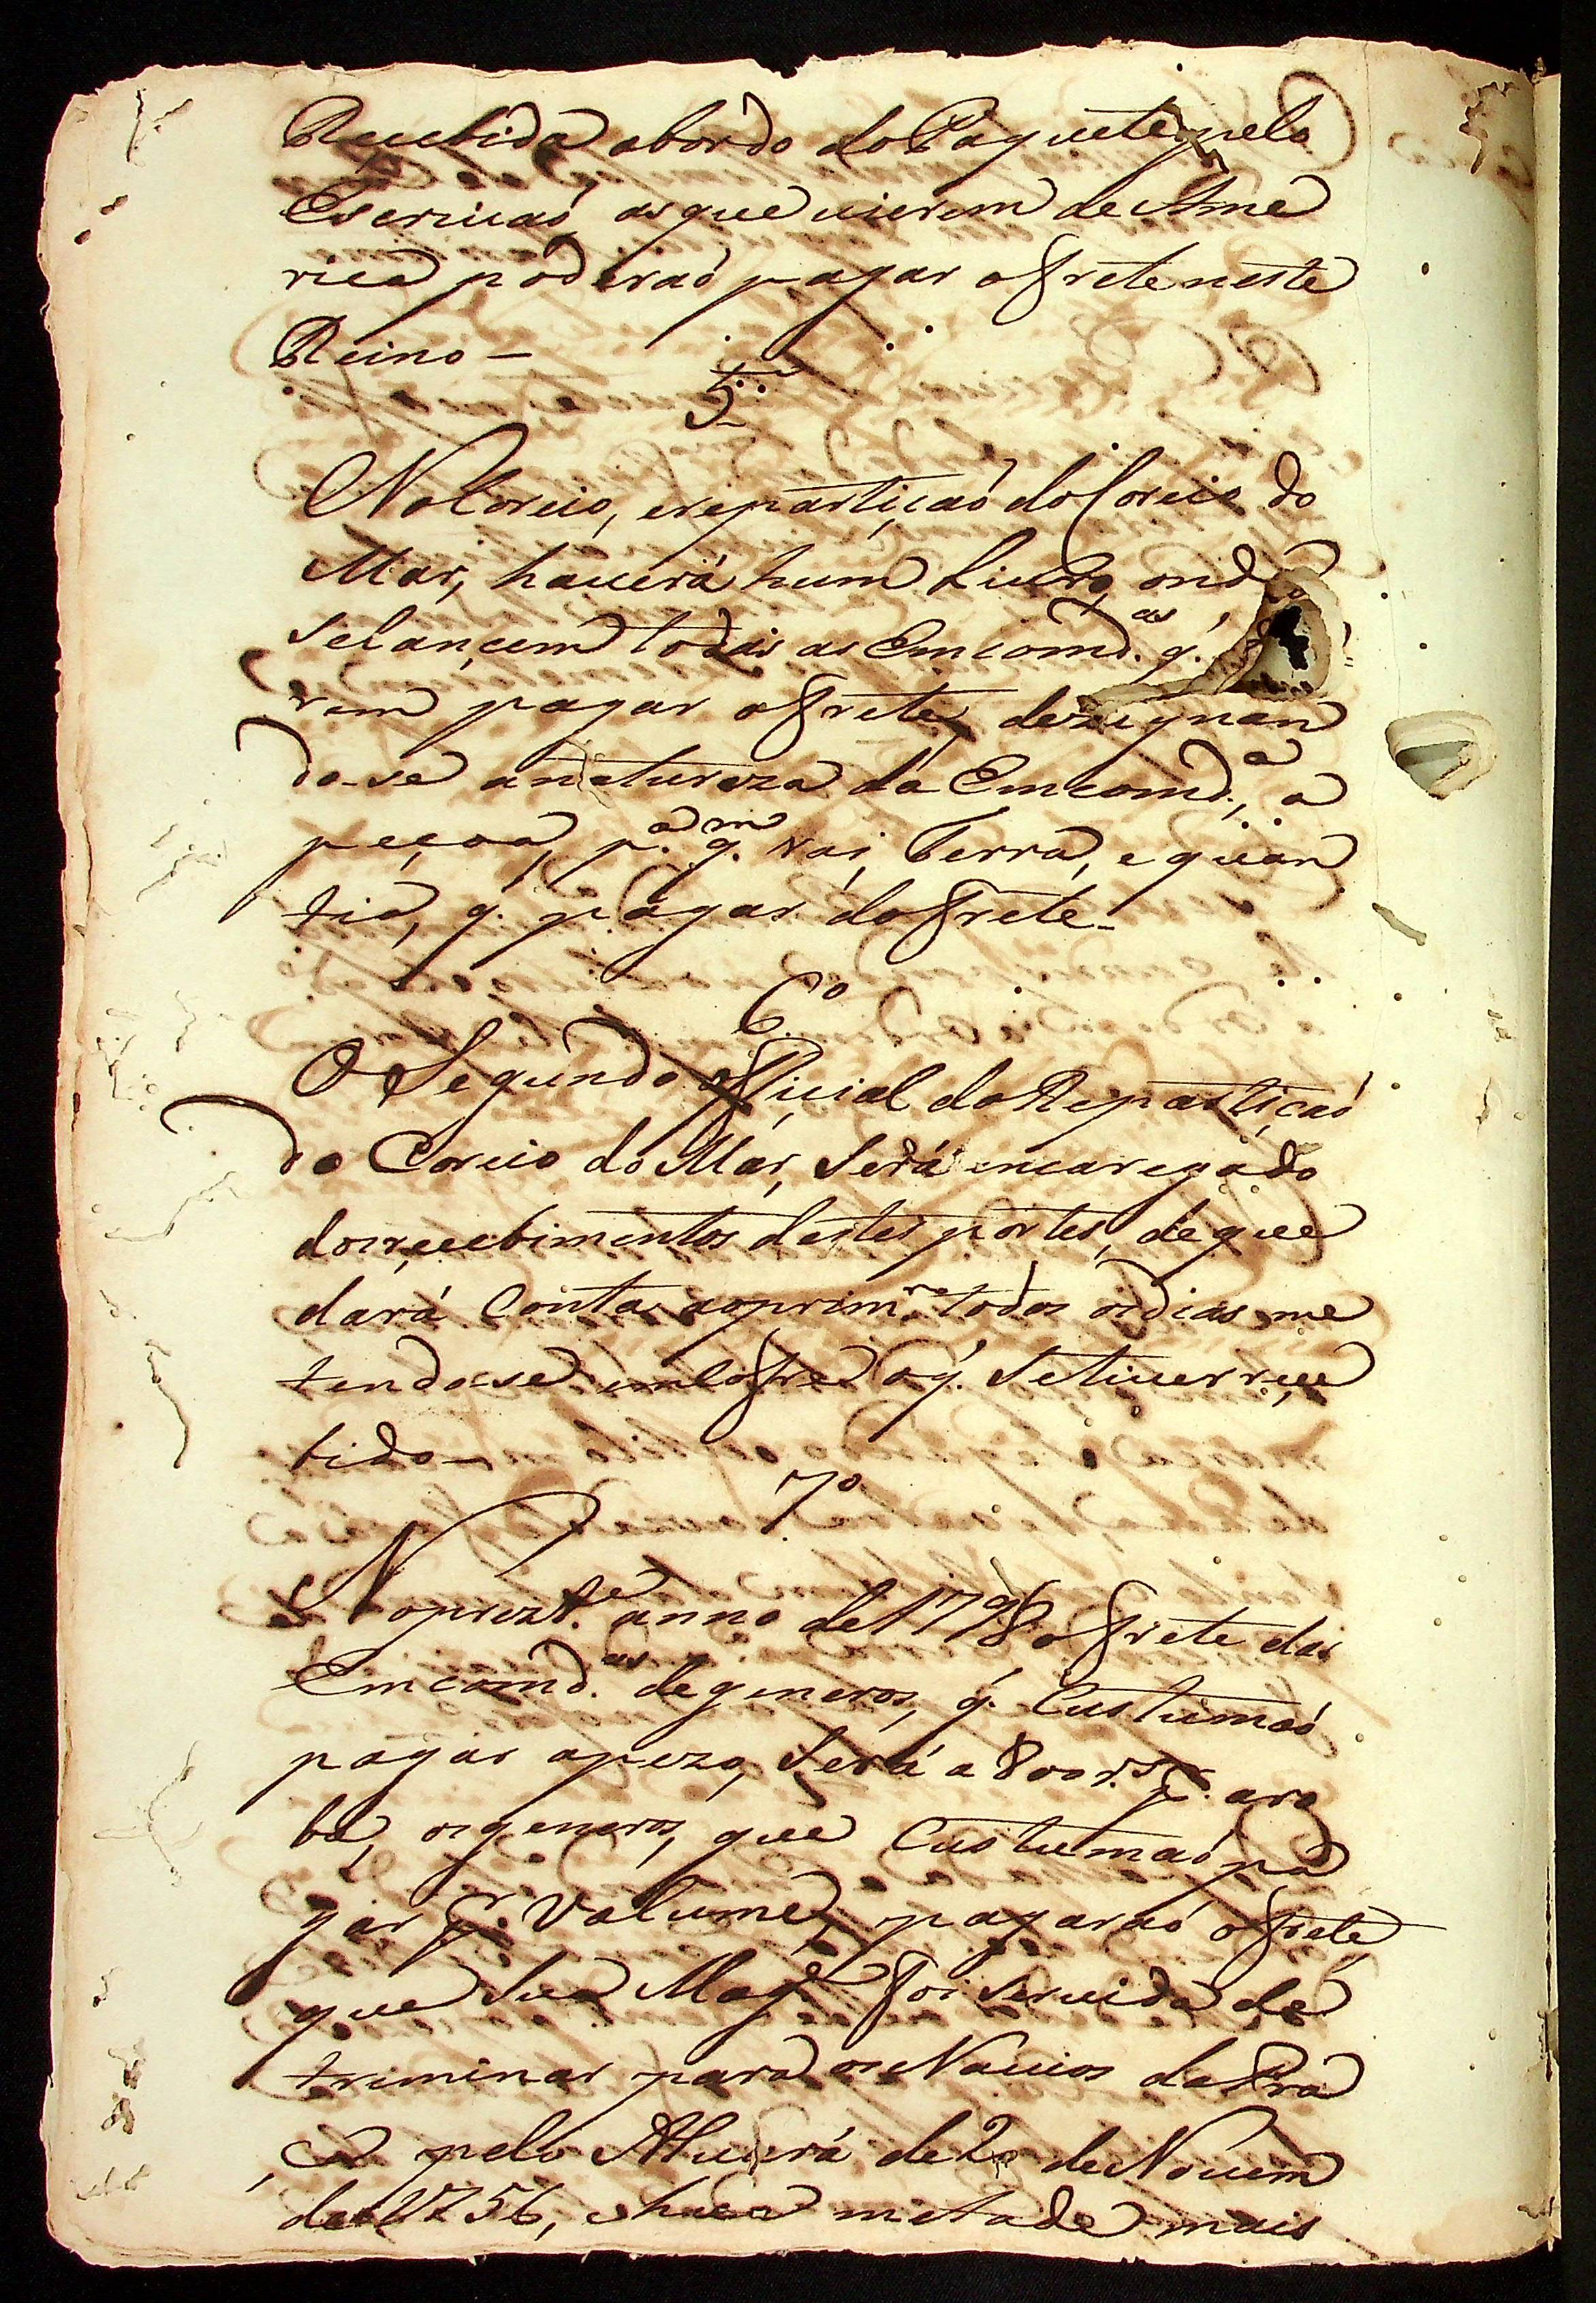 Recebida abordo do Paquete, pelo
Escrivaó, as que vierem de Ame
rica poderaó pagar o frete neste
Reino —
5.º
No Correio, e repartiçaó do Correio do
Mar, haverá hum Livro, onde
se lançem todas as Emcomd.as q.
rem pagar o frete, dezignan
do-se a natureza da Emcomd.a, a
peçoa, p.a q.m vai, Terra, e quan
tia, q. pagar do frete —
6.º
O Segundo official da Repartiçaó
do Correio do Mar, Será encaregado
dos reçebimentos destes portes, de que
dará Conta ao prim.ro todos os dias me
tendo-se em Cofre o q. Se tiver reçe
bido —
7.º
No prezt.e anno de 1798 o frete das
Emcomd.as de generos, q. Custumaó
pagar a pezo, Será a 800 r.s p.r aro
ba, os generos, que Custumaó pa
gar p.r Volume, pagaraó o frete,
que Sua Mag.e foi Servida de
triminar para os Navios da Pra
ça pelo Alvará de 20 de Novem
de 1756, e hua metade mais